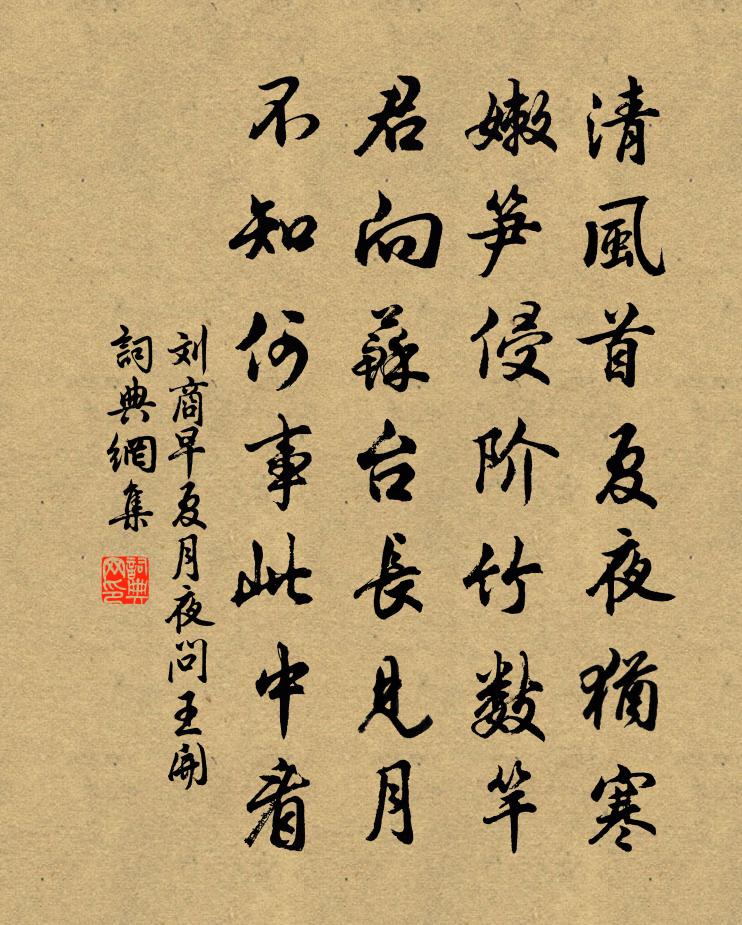 清風首夏夜猶寒
嫩笋侵阶竹数竿
君向蘇台長見月
不知何事此中看
刘商早夏月夜问王開
詞典網集
詞典網印